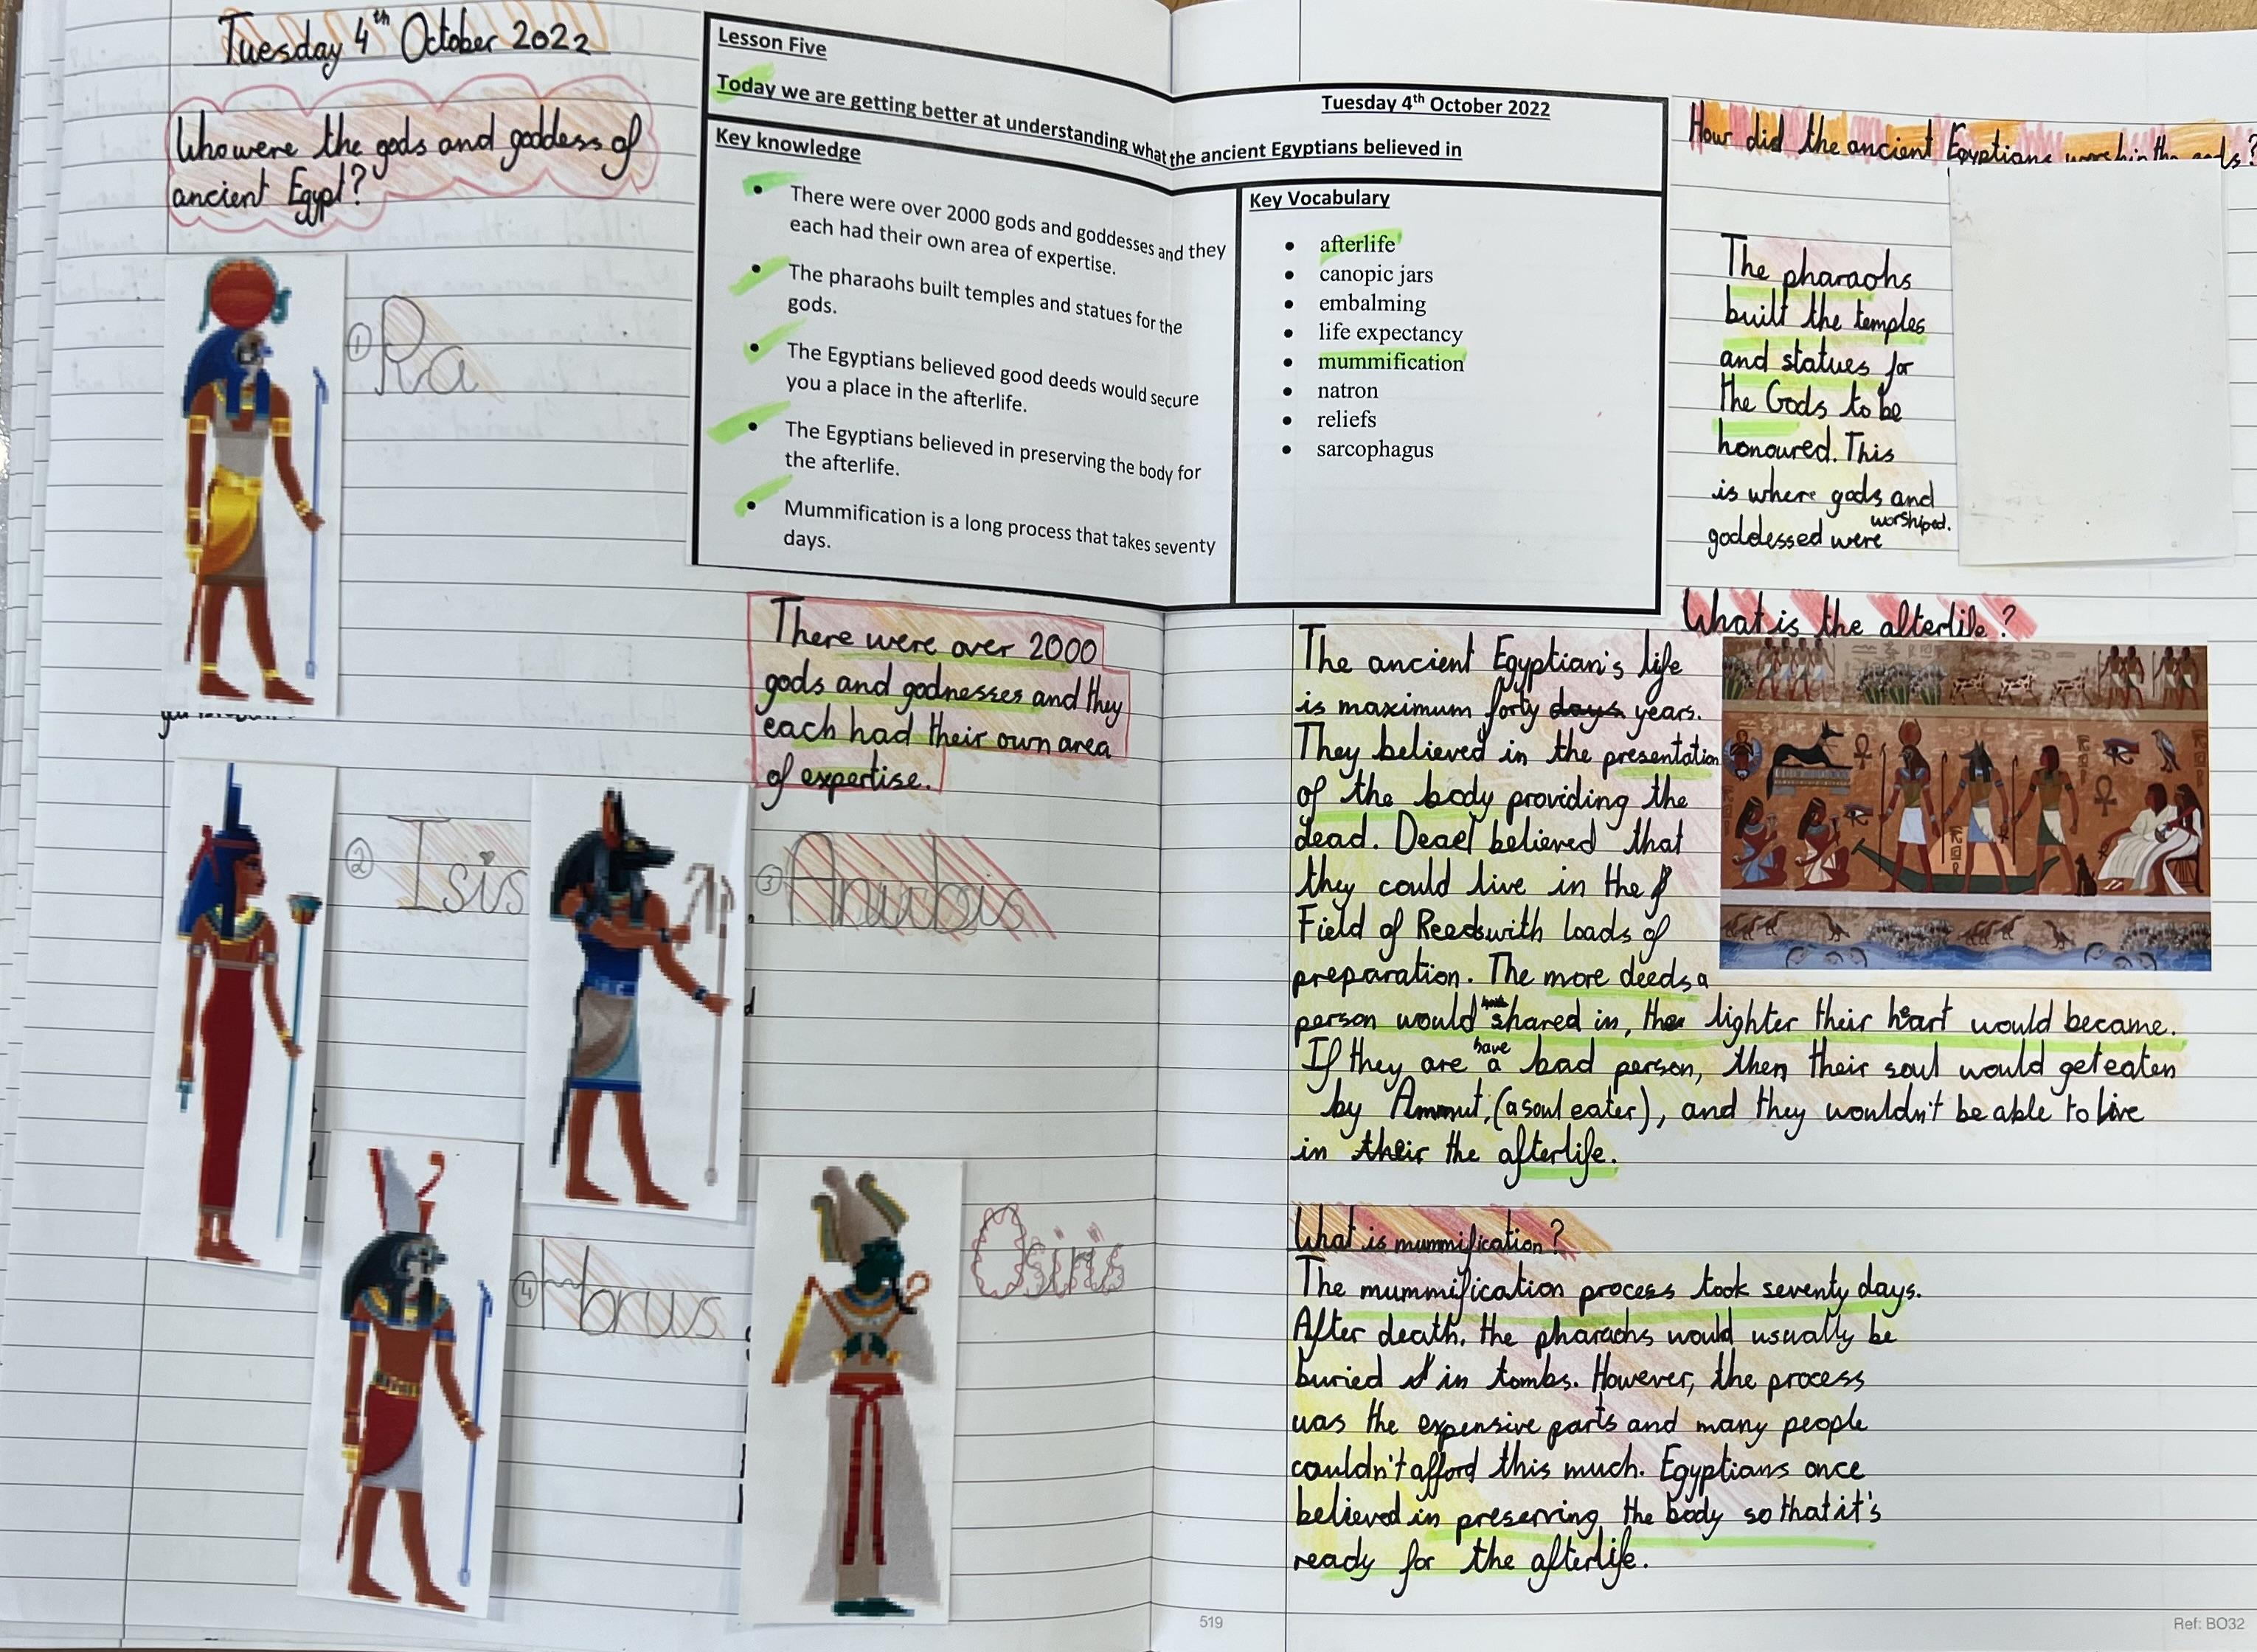 Tuesday 4th October 2022
Who were the gods and goddess of
ancient Egypt?
① Ra
② Isis
③ Anubis
④ Horus
Osiris
There were over 2000
gods and godnesses and they
each had their own area
of expertise.
Lesson Five
Tuesday 4th October 2022
Today we are getting better at understanding what the ancient Egyptians believed in
Key knowledge
• There were over 2000 gods and goddesses and they
each had their own area of expertise.
• The pharaohs built temples and statues for the
gods.
• The Egyptians believed good deeds would secure
you a place in the afterlife.
• The Egyptians believed in preserving the body for
the afterlife.
• Mummification is a long process that takes seventy
days.
Key Vocabulary
• afterlife
• canopic jars
• embalming
• life expectancy
• mummification
• natron
• reliefs
• sarcophagus
How did the ancient Egyptians worship the gods?
The pharaohs
built the temples
and statues for
the Gods to be
honoured. This
is where gods and
goddessed were worshiped.
What is the afterlife?
The ancient Egyptian's life
is maximum forty days years.
They believed in the presentation
of the body providing the
dead. Dead believed that
they could live in the
Field of Reeds with loads of
preparation. The more deeds a
person would have shared in, the lighter their heart would became.
If they are have a bad person, then their soul would get eaten
by Ammut, (a soul eater), and they wouldn't be able to live
in their the afterlife.
What is mummification?
The mummification process took seventy days.
After death, the pharaohs would usually be
buried in tombs. However, the process
was the expensive parts and many people
couldn't afford this much. Egyptians once
believed in preserving the body so that it's
ready for the afterlife.
519
Ref: BO32